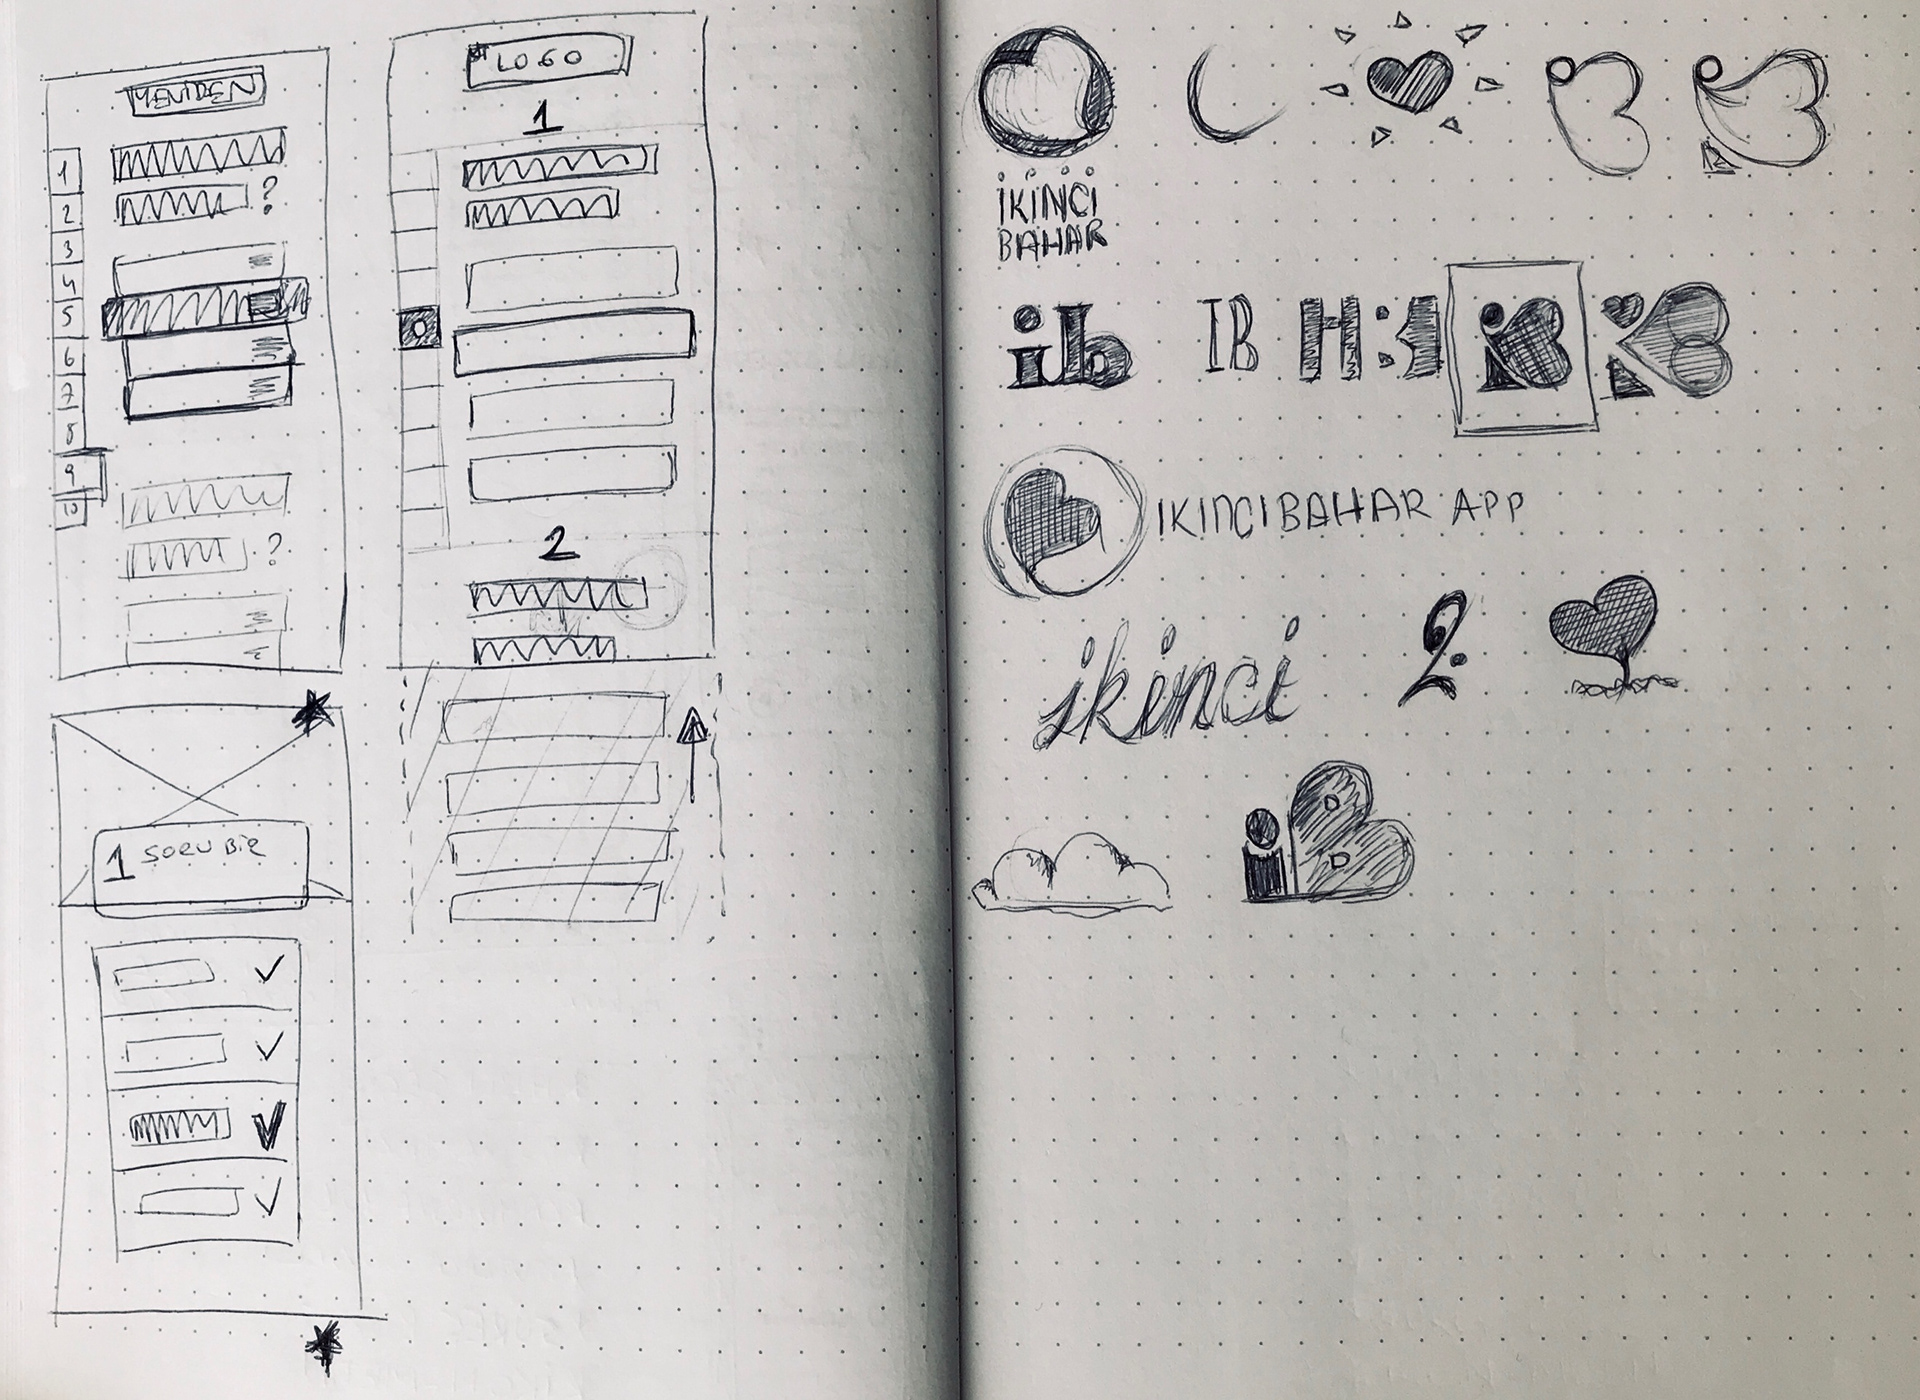 1
2
?
3
4
5
6
7
8
9
10
?
LOGO
1
2
1 SORU BİR
İKİNCİ
BAHAR
ib
IB
IKINCIBAHAR APP
ikinci
2
i